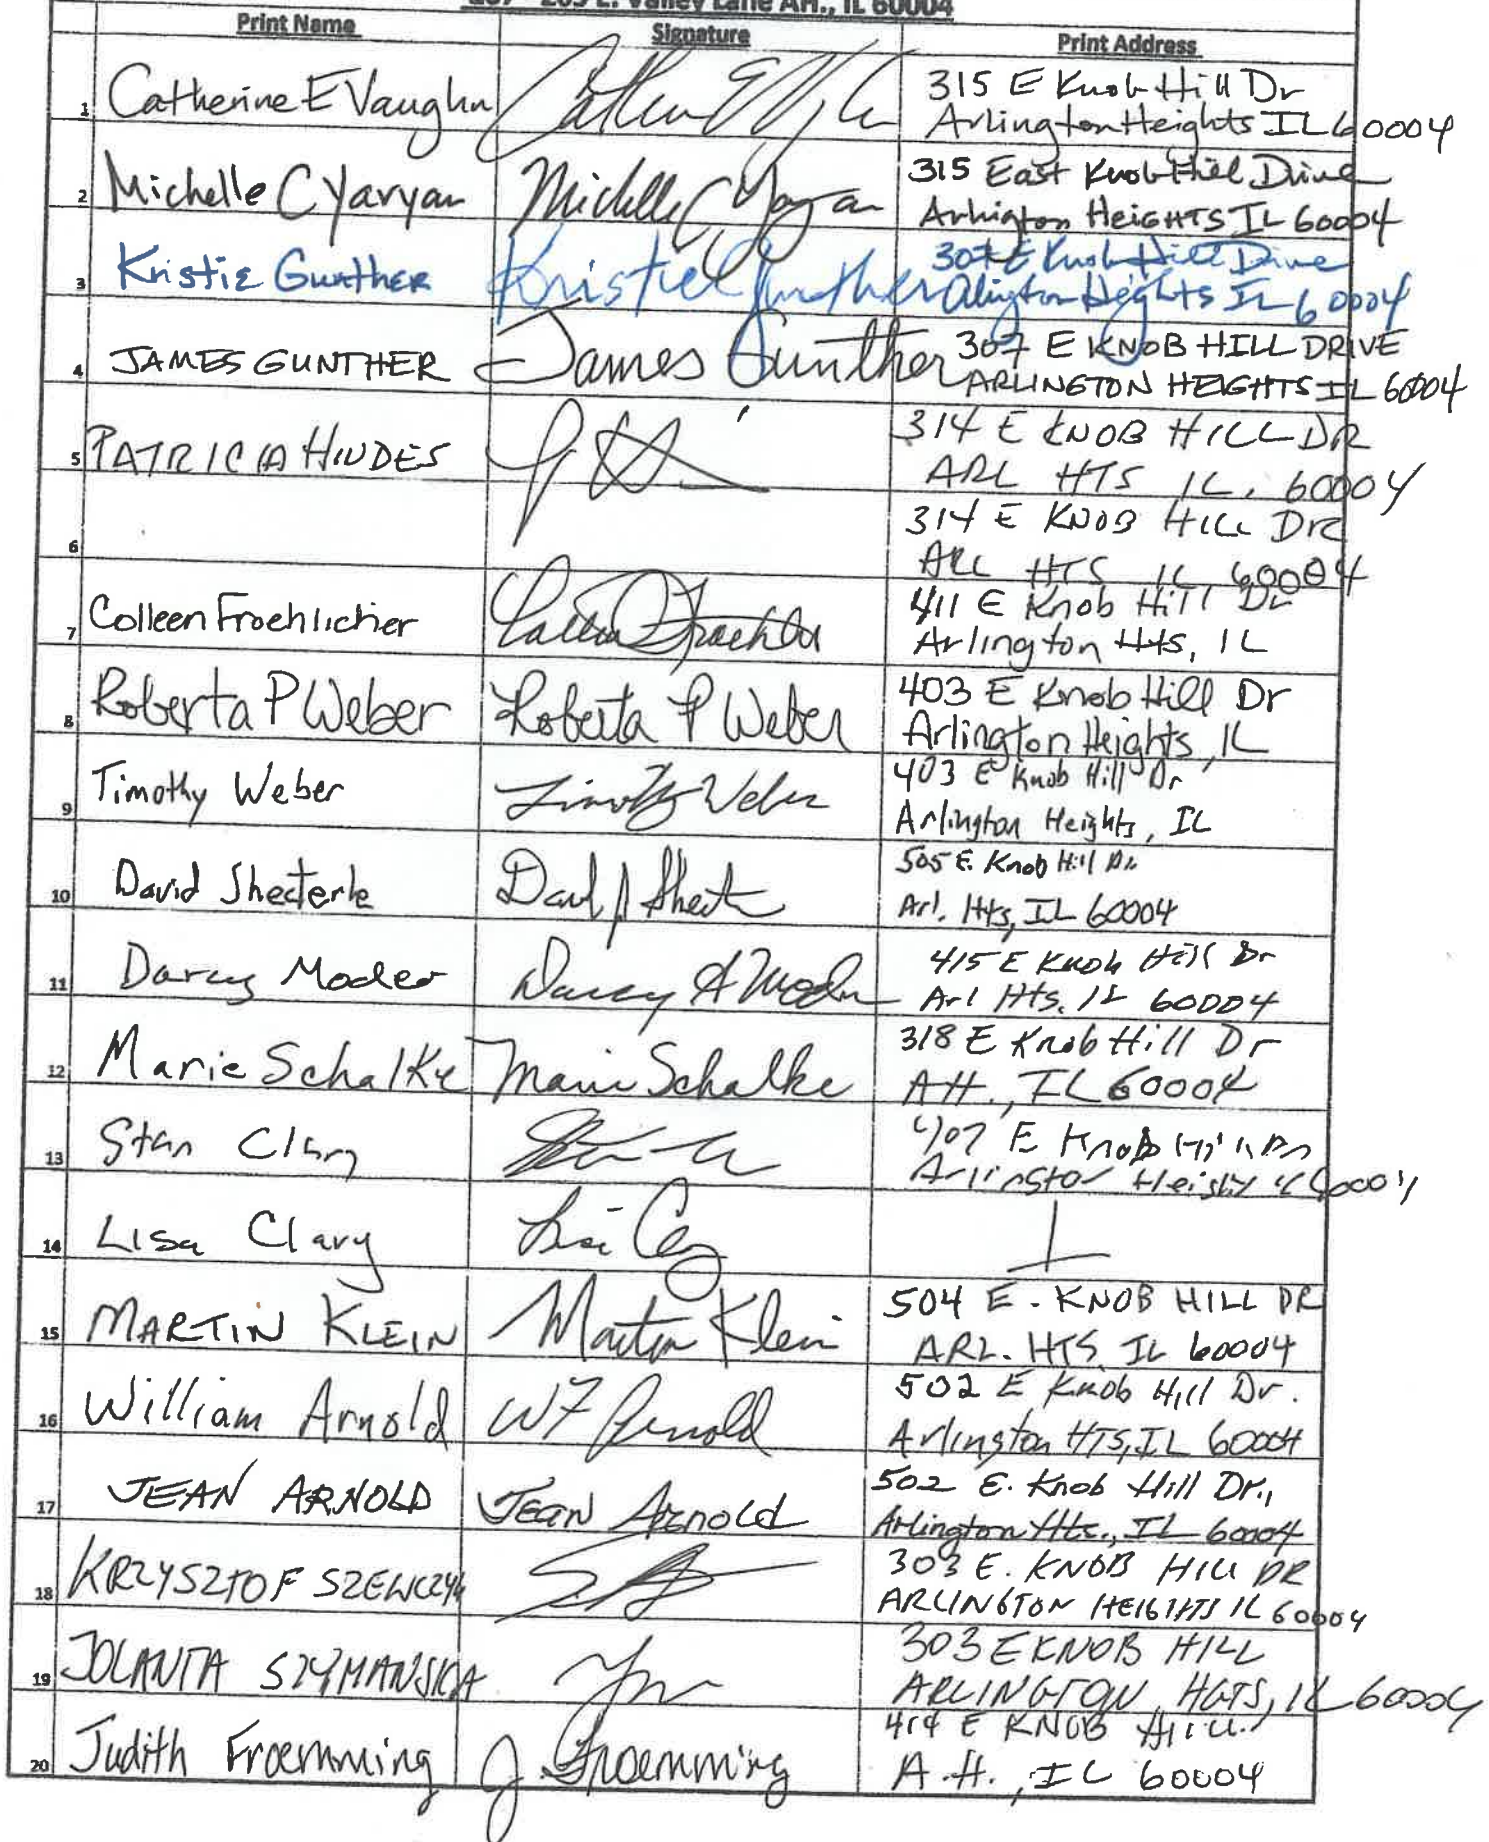 E. Valley Lane AH., IL 60004
Print Name Signature Print Address
1 Catherine E Vaughn 315 E Knob Hill Dr
Arlington Heights IL 60004
2 Michelle C Yaryan Michelle C Yaryan 315 East Knob Hill Drive
Arlington HEIGHTS IL 60004
3 Kristie Gunther Kristie Gunther 307 E Knob Hill Drive
Alington Heights IL 60004
4 JAMES GUNTHER James Gunther 307 E KNOB HILL DRIVE
ARLINGTON HEIGHTS IL 60004
5 PATRICIA HINDES 314 E KNOB HILL DR
ARL HTS IL. 60004
6 314 E KNOB HILL DR
ARL HTS IL 60004
7 Colleen Froehlicher 411 E Knob Hill Dr
Arlington Hts, IL
8 Roberta P Weber Roberta P Weber 403 E Knob Hill Dr
Arlington Heights, IL
9 Timothy Weber Timothy Weber 403 E Knob Hill Dr
Arlington Heights, IL
10 David Shecterle 505 E. Knob Hill Dr
Arl. Hts, IL 60004
11 Darcy Moder Darcy A Moder 415 E Knob Hill Dr
Arl Hts. IL 60004
12 Marie Schalke Marie Schalke 318 E Knob Hill Dr
AH., IL 60004
13 Stan Clary 407 E Knob Hill Dr
Arlington Heights IL 60004
14 Lisa Clary
15 MARTIN KLEIN Martin Klein 504 E. KNOB HILL DR
ARL. HTS IL 60004
16 William Arnold WF Arnold 502 E Knob Hill Dr.
Arlington HTS, IL 60004
17 JEAN ARNOLD JEAN Arnold 502 E. Knob Hill Dr.,
Arlington Hts., IL 60004
18 KRZYSZTOF SZEWCZYK 303 E. KNOB HILL DR
ARLINGTON HEIGHTS IL 60004
19 JOLANTA SZYMANSKA 303 E KNOB HILL
ARLINGTON HGTS, IL 60004
20 Judith Froemming J. Froemming 414 E KNOB HILL
A.H., IL 60004